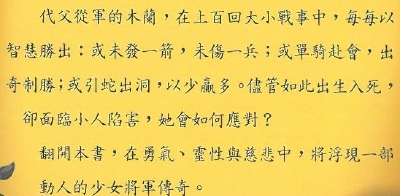 代父從軍的木蘭，在上百回大小戰事中，每每以
智慧勝出：或未發一箭，未傷一兵；或單騎赴會，出
奇制勝；或引蛇出洞，以少贏多。儘管如此出生入死，
卻面臨小人陷害，她會如何應對？
翻開本書，在勇氣、靈性與慈悲中，將浮現一部
動人的少女將軍傳奇。